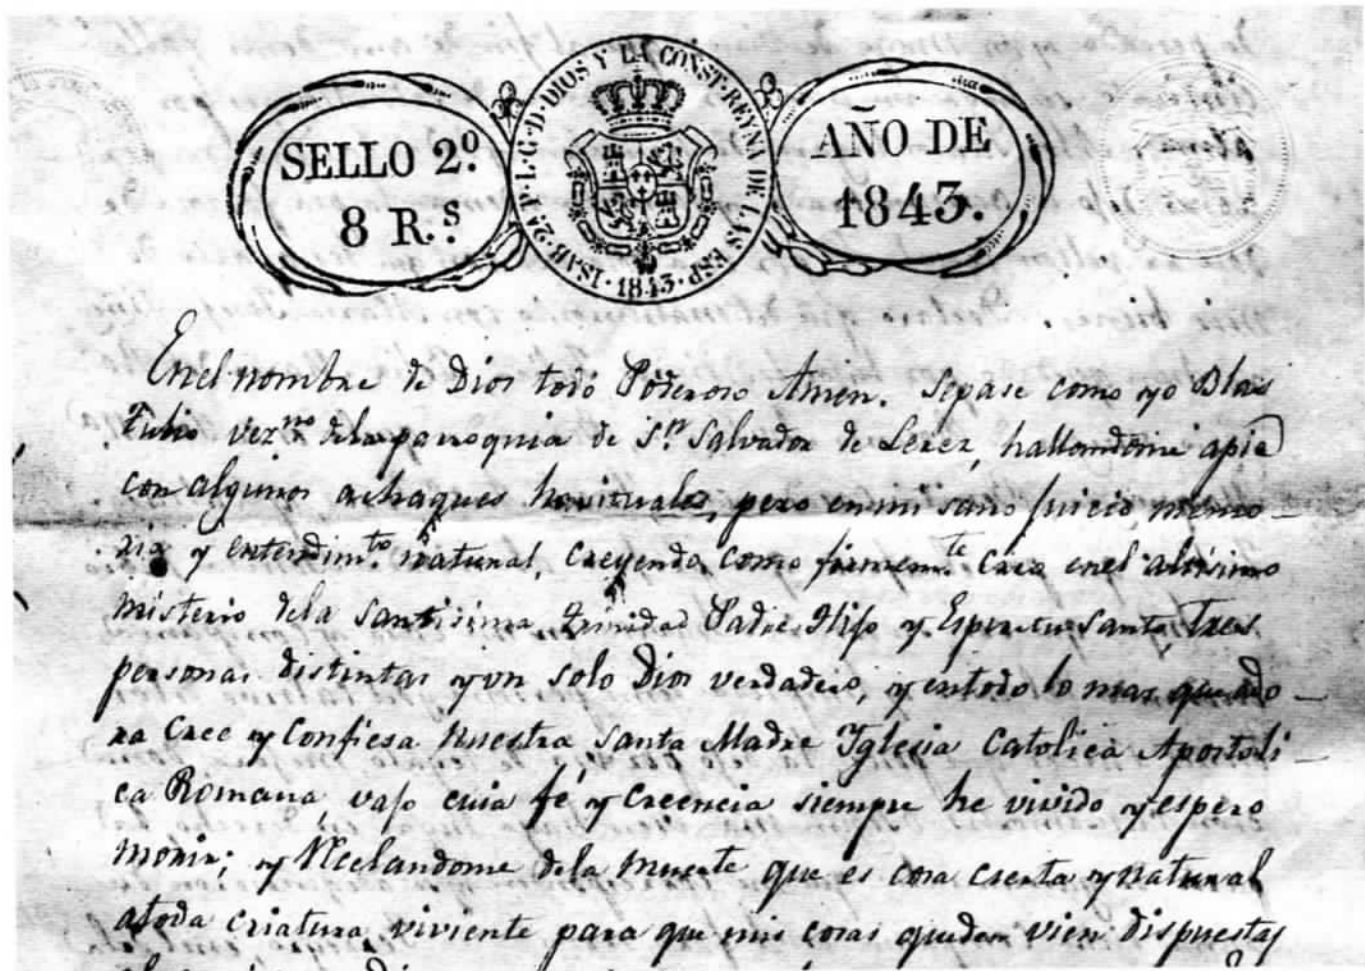 SELLO 2º.
8 R.s
ISAB. 2ª. P. L. G. D. DIOS Y LA CONST. REYNA DE LAS ESP. 1843.
AÑO DE
1843.
Enel nombre de Dios todo Poderoso Amen. Sepase como yo Blas
vezno. dela parroquia de Sn. Salvador de Lerez, hallandome apie
con algunos achaques havituales, pero enmi sano juicio, memo-
ria y entendimto. natural, creyendo, como firmemte. creo enel altisimo
misterio dela santisima trinidad Padre, Hijo y Espiritu santo, tres
personas distintas y un solo Dios verdadero, y entodo lo mas que ado-
ra cree y confiesa nuestra santa Madre Iglesia Catolica Apostoli-
ca Romana, vajo cuia fé y creencia siempre he vivido y espero
morir; y Recelandome dela muerte que es cosa cierta y natural
atoda criatura viviente para que mis cosas queden vien dispuestas